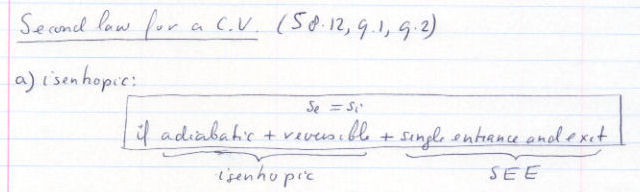 Second law for a C.V. (S 8.12, 9.1, 9.2)
a) isentropic:
se = si
if adiabatic + reversible + single entrance and exit
isentropic SEE